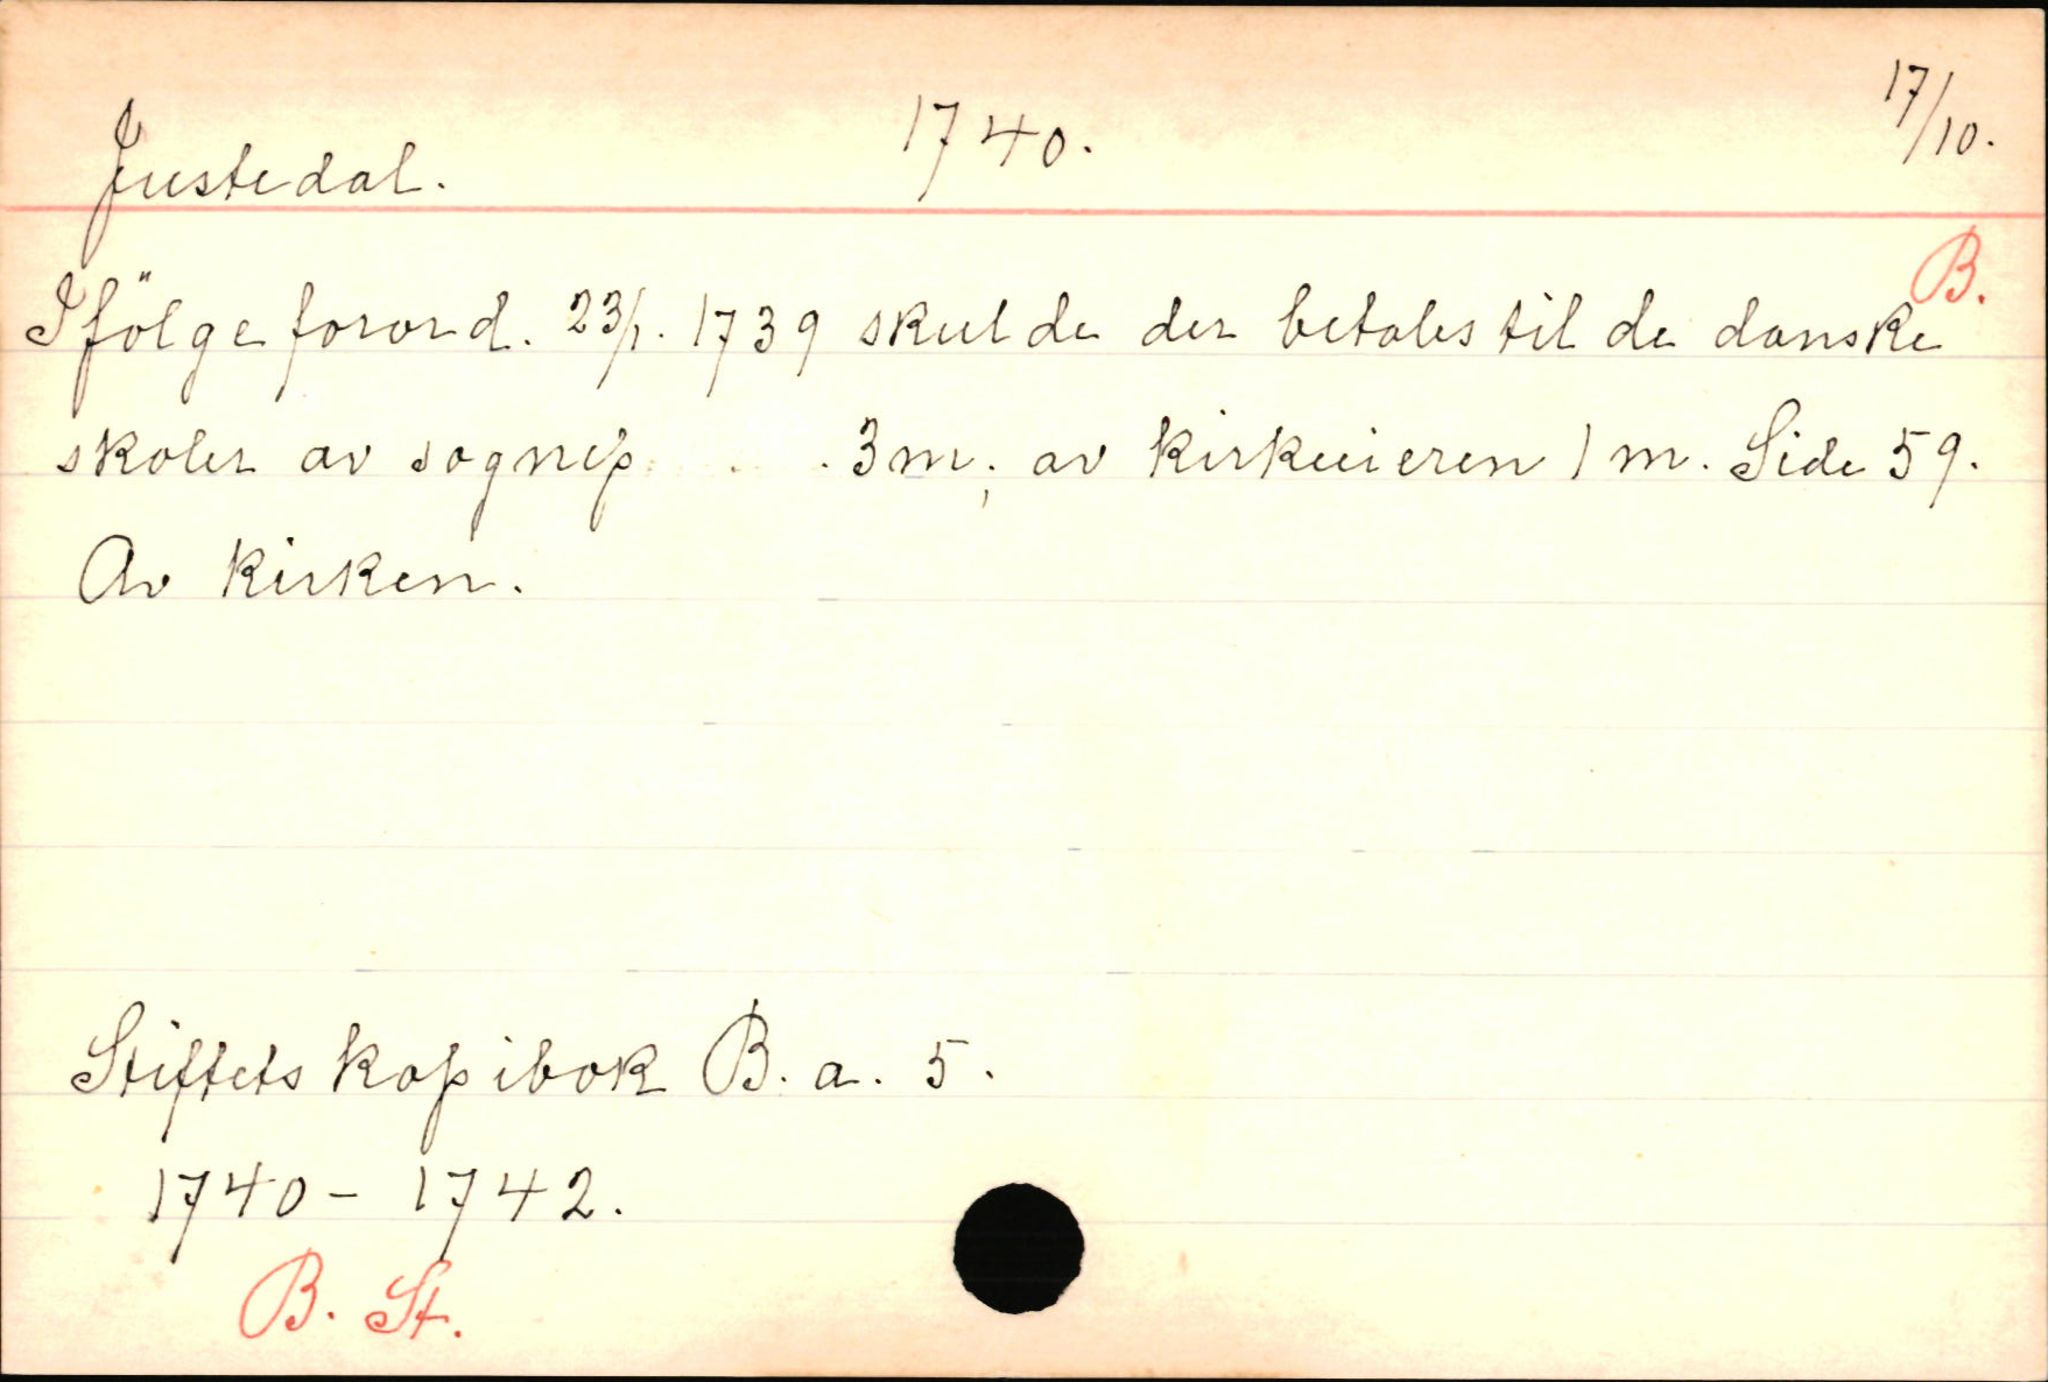 Justedal. 1740. 17/10.
B.
Ifölge forord. 23/1. 1739 skulde der betales til de danske
skoler av sognep . . . 3 m; av kirkeeieren 1 m. Side 59.
Av kirken.
Stiftets kopibok B. a. 5.
1740 - 1742.
B. St.